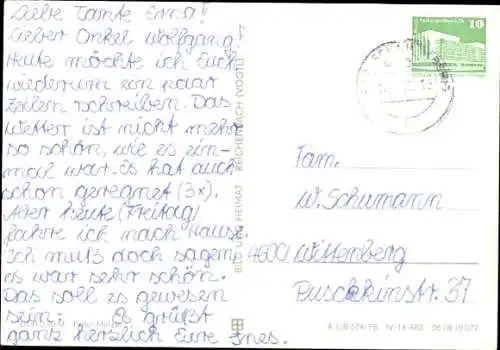 Liebe Tante Erna!
Lieber Onkel Wolfgang!
Heute möchte ich Euch
wiederum ein paar
Zeilen schreiben. Das
Wetter ist nicht mehr
so schön, wie es ein-
mal war. Es hat auch
schon geregnet (3x).
Aber heute (Freitag)
fahre ich nach Hause.
Ich muß doch sagen,
es war sehr schön.
Das soll es gewesen
sein. Es grüßt
ganz herzlich Eure Ines.
BILD UND HEIMAT REICHENBACH (VOGTL)
10
Fam.
W. Schumann
4600 Wittenberg
Puschkinstr. 37
A 1/B 574/78 IV-14-483 06 08 19 072